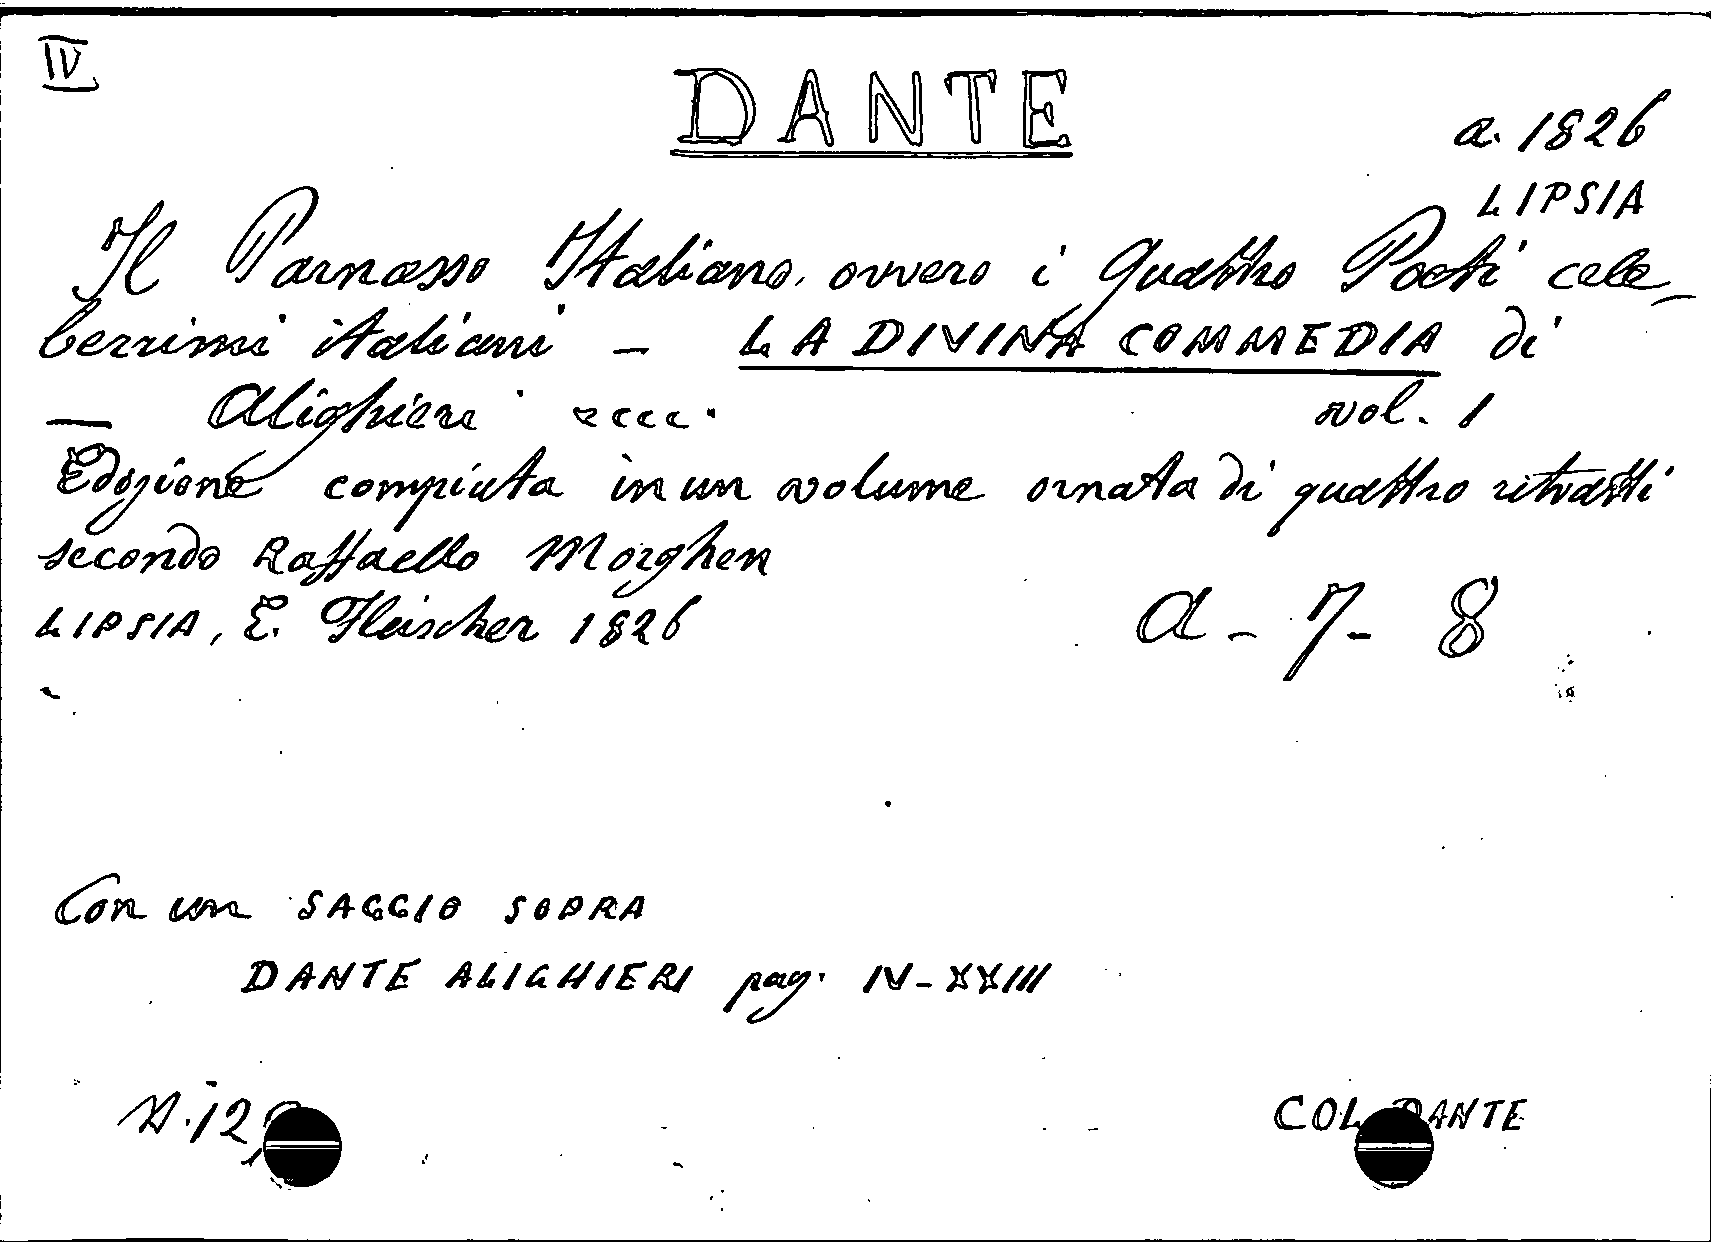 IV
DANTE
a. 1826
LIPSIA
Il Parnasso Italiano, ovvero i Quattro Poeti cele-
berrimi italiani - LA DIVINA COMMEDIA di
— Alighieri eccc. vol. 1
Edizione compiuta in un volume ornata di quattro ritratti
secondo Raffaello Morghen
LIPSIA, E. Fleischer 1826
a - 7 - 8
Con un SAGGIO SOPRA
DANTE ALIGHIERI pag. IV-XXIII
COL DANTE